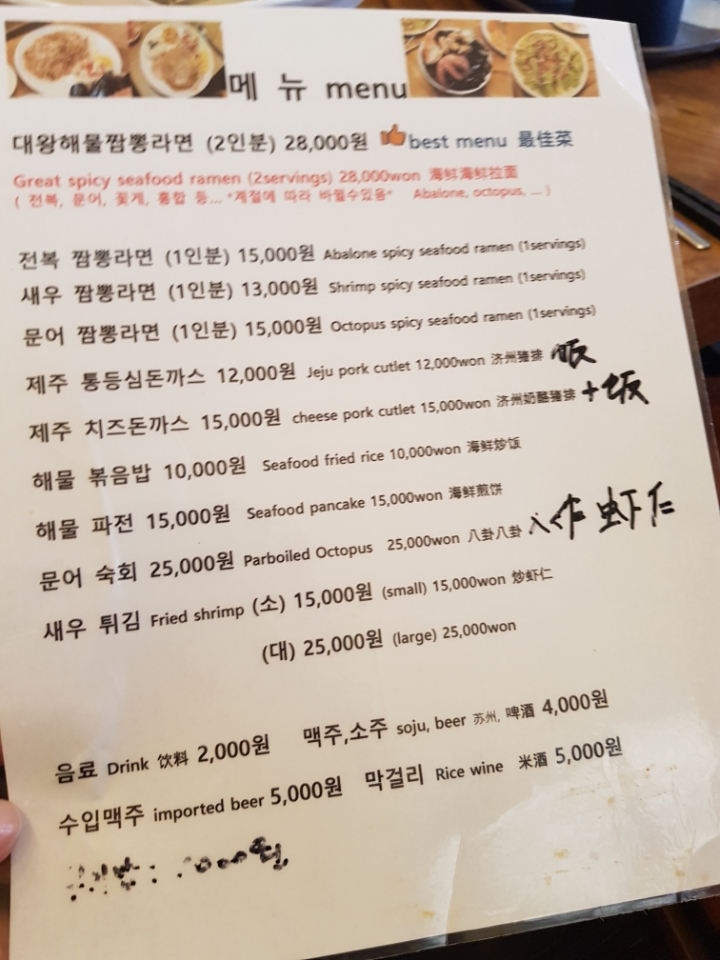 메 뉴 menu
대왕해물짬뽕라면 (2인분) 28,000원 best menu 最佳菜
Great spicy seafood ramen (2servings) 28,000won 海鲜海鲜拉面
( 전복, 문어, 꽃게, 홍합 등... *계절에 따라 바뀔수있음* Abalone, octopus, ... )
전복 짬뽕라면 (1인분) 15,000원 Abalone spicy seafood ramen (1servings)
새우 짬뽕라면 (1인분) 13,000원 Shrimp spicy seafood ramen (1servings)
문어 짬뽕라면 (1인분) 15,000원 Octopus spicy seafood ramen (1servings)
제주 통등심돈까스 12,000원 Jeju pork cutlet 12,000won 济州猪排
제주 치즈돈까스 15,000원 cheese pork cutlet 15,000won 济州奶酪猪排 +饭
해물 볶음밥 10,000원 Seafood fried rice 10,000won 海鲜炒饭
해물 파전 15,000원 Seafood pancake 15,000won 海鲜煎饼
문어 숙회 25,000원 Parboiled Octopus 25,000won 八卦八卦 虾仁
새우 튀김 Fried shrimp (소) 15,000원 (small) 15,000won 炒虾仁
(대) 25,000원 (large) 25,000won
음료 Drink 饮料 2,000원 맥주,소주 soju, beer 苏州, 啤酒 4,000원
수입맥주 imported beer 5,000원 막걸리 Rice wine 米酒 5,000원